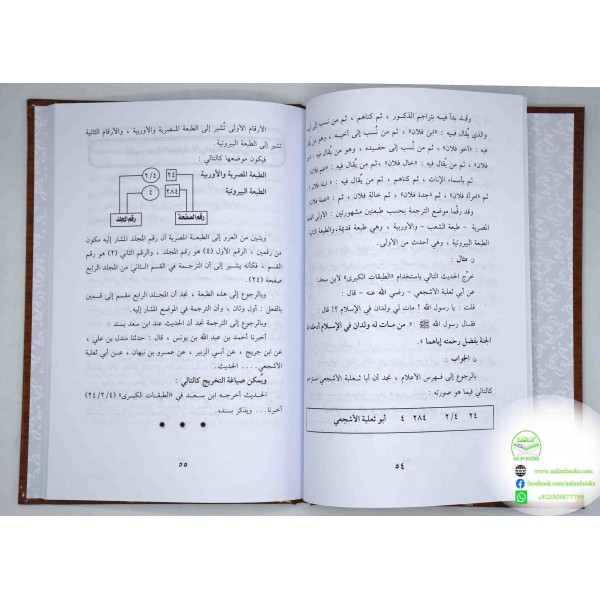 وقد بدأ فيه بتراجم الذكور ، ثم كناهم ، ثم من نسب إلى
والذي يقال فيه : «ابن فلان» ، ثم من نُسب إلى أخيـه ، وهو من يقال
فيه : «أخو فلان» ، ثم من نُسب إلى حفيـده ، وهو من يُقال فيه :
فلان» ، ثم من يُقال فيه : «خال فلان» ، ثم من يُقال فيه : «عم فلان
ثم بأسماء الإناث ، ثم كناهم ، ثم من يُقال
فيه : «امرأة فلان» ، ثم «جدة فلان» ، ثم خالة فلان ، ثم «عمة فلان
وقد رقَّما موضع الترجمة بحسب طبعتين مشهورتين : الأولى
مصرية - طبعة الشعب - والأوربية ، وهي طبعة قديمة، والطبعة الثانية
البيروتية ، وهي أحدث من الأولى.
مثال :
خرِّج الحديث التالي باستخدام «الطبقات الكبرى» لابن سعد :
عن أبي ثعلبة الأشجعي - رضي الله عنه - قال :
قلت : يا رسول الله ! مات لي ولدان في الإسلام ؟! قال :
فقال رسول الله ﷺ : « من مـات له ولدان في الإسلام أدخله الله
الجنة بفضل رحمته إياهما ».
الجواب :
بالرجوع إلى فهرس الأعلام ، نجد أن أبا ثعلبة الأشجعي مترجم
كالتالي فيما هو صورته :
أبو ثعلبة الأشجعي ٤ ٢٨٤ ٢/٤ ٢٤
٥٤
الأرقام الأولى تُشير إلى الطبعة المصرية والأوربية ، والأرقام الثانية
تشير إلى الطبعة البيروتية.
فيكون موضعها كالتالي :
الطبعة المصرية والأوربية ٢٤ ٢/٤
الطبعة البيروتية ٢٨٤ ٤
رقم الصفحة رقم المجلد
ويتبين من العزو إلى الطبعـة المصرية أن رقم المجلد المشار إليه مكون
من رقمين ، الرقم الأول (٤) هو رقم المجلد ، والرقم الثاني (٢) هو رقم
القسم ، فكأنه يشـير إلى أن الترجمة في القسم الثـاني من المجلد الرابع
صفحة (٢٤).
وبالرجوع إلى هذه الطبعة ، نجد أن المجلد الرابع مقسم إلى قسمين
بالفعل : أول وثان ، وأن الترجمة في الموضع المشار إليه.
وبالرجوع إلى الترجمة نجد أن الحديث عند ابن سعد بسند :
أخبرنا أحمد بن عبد الله بن يونس ، قال : حدثنا مندل بن علي ،
عن ابن جريج ، عن أبي الزبير ، عن عمـرو بن نبهان ، عـن أبي ثعلبة
الأشجعي .... الحديث.
ويُمكن صياغة التخريج كالتالي :
الحـديث أخرجه ابن سعـد في «الطبقات الكبرى» (٢٤/٢/٤)
أخبرنا.... ويذكر بسنده.
٥٥
ASLIM BOOKS
www.aslimbooks.com
facebook.com/aslimbooks